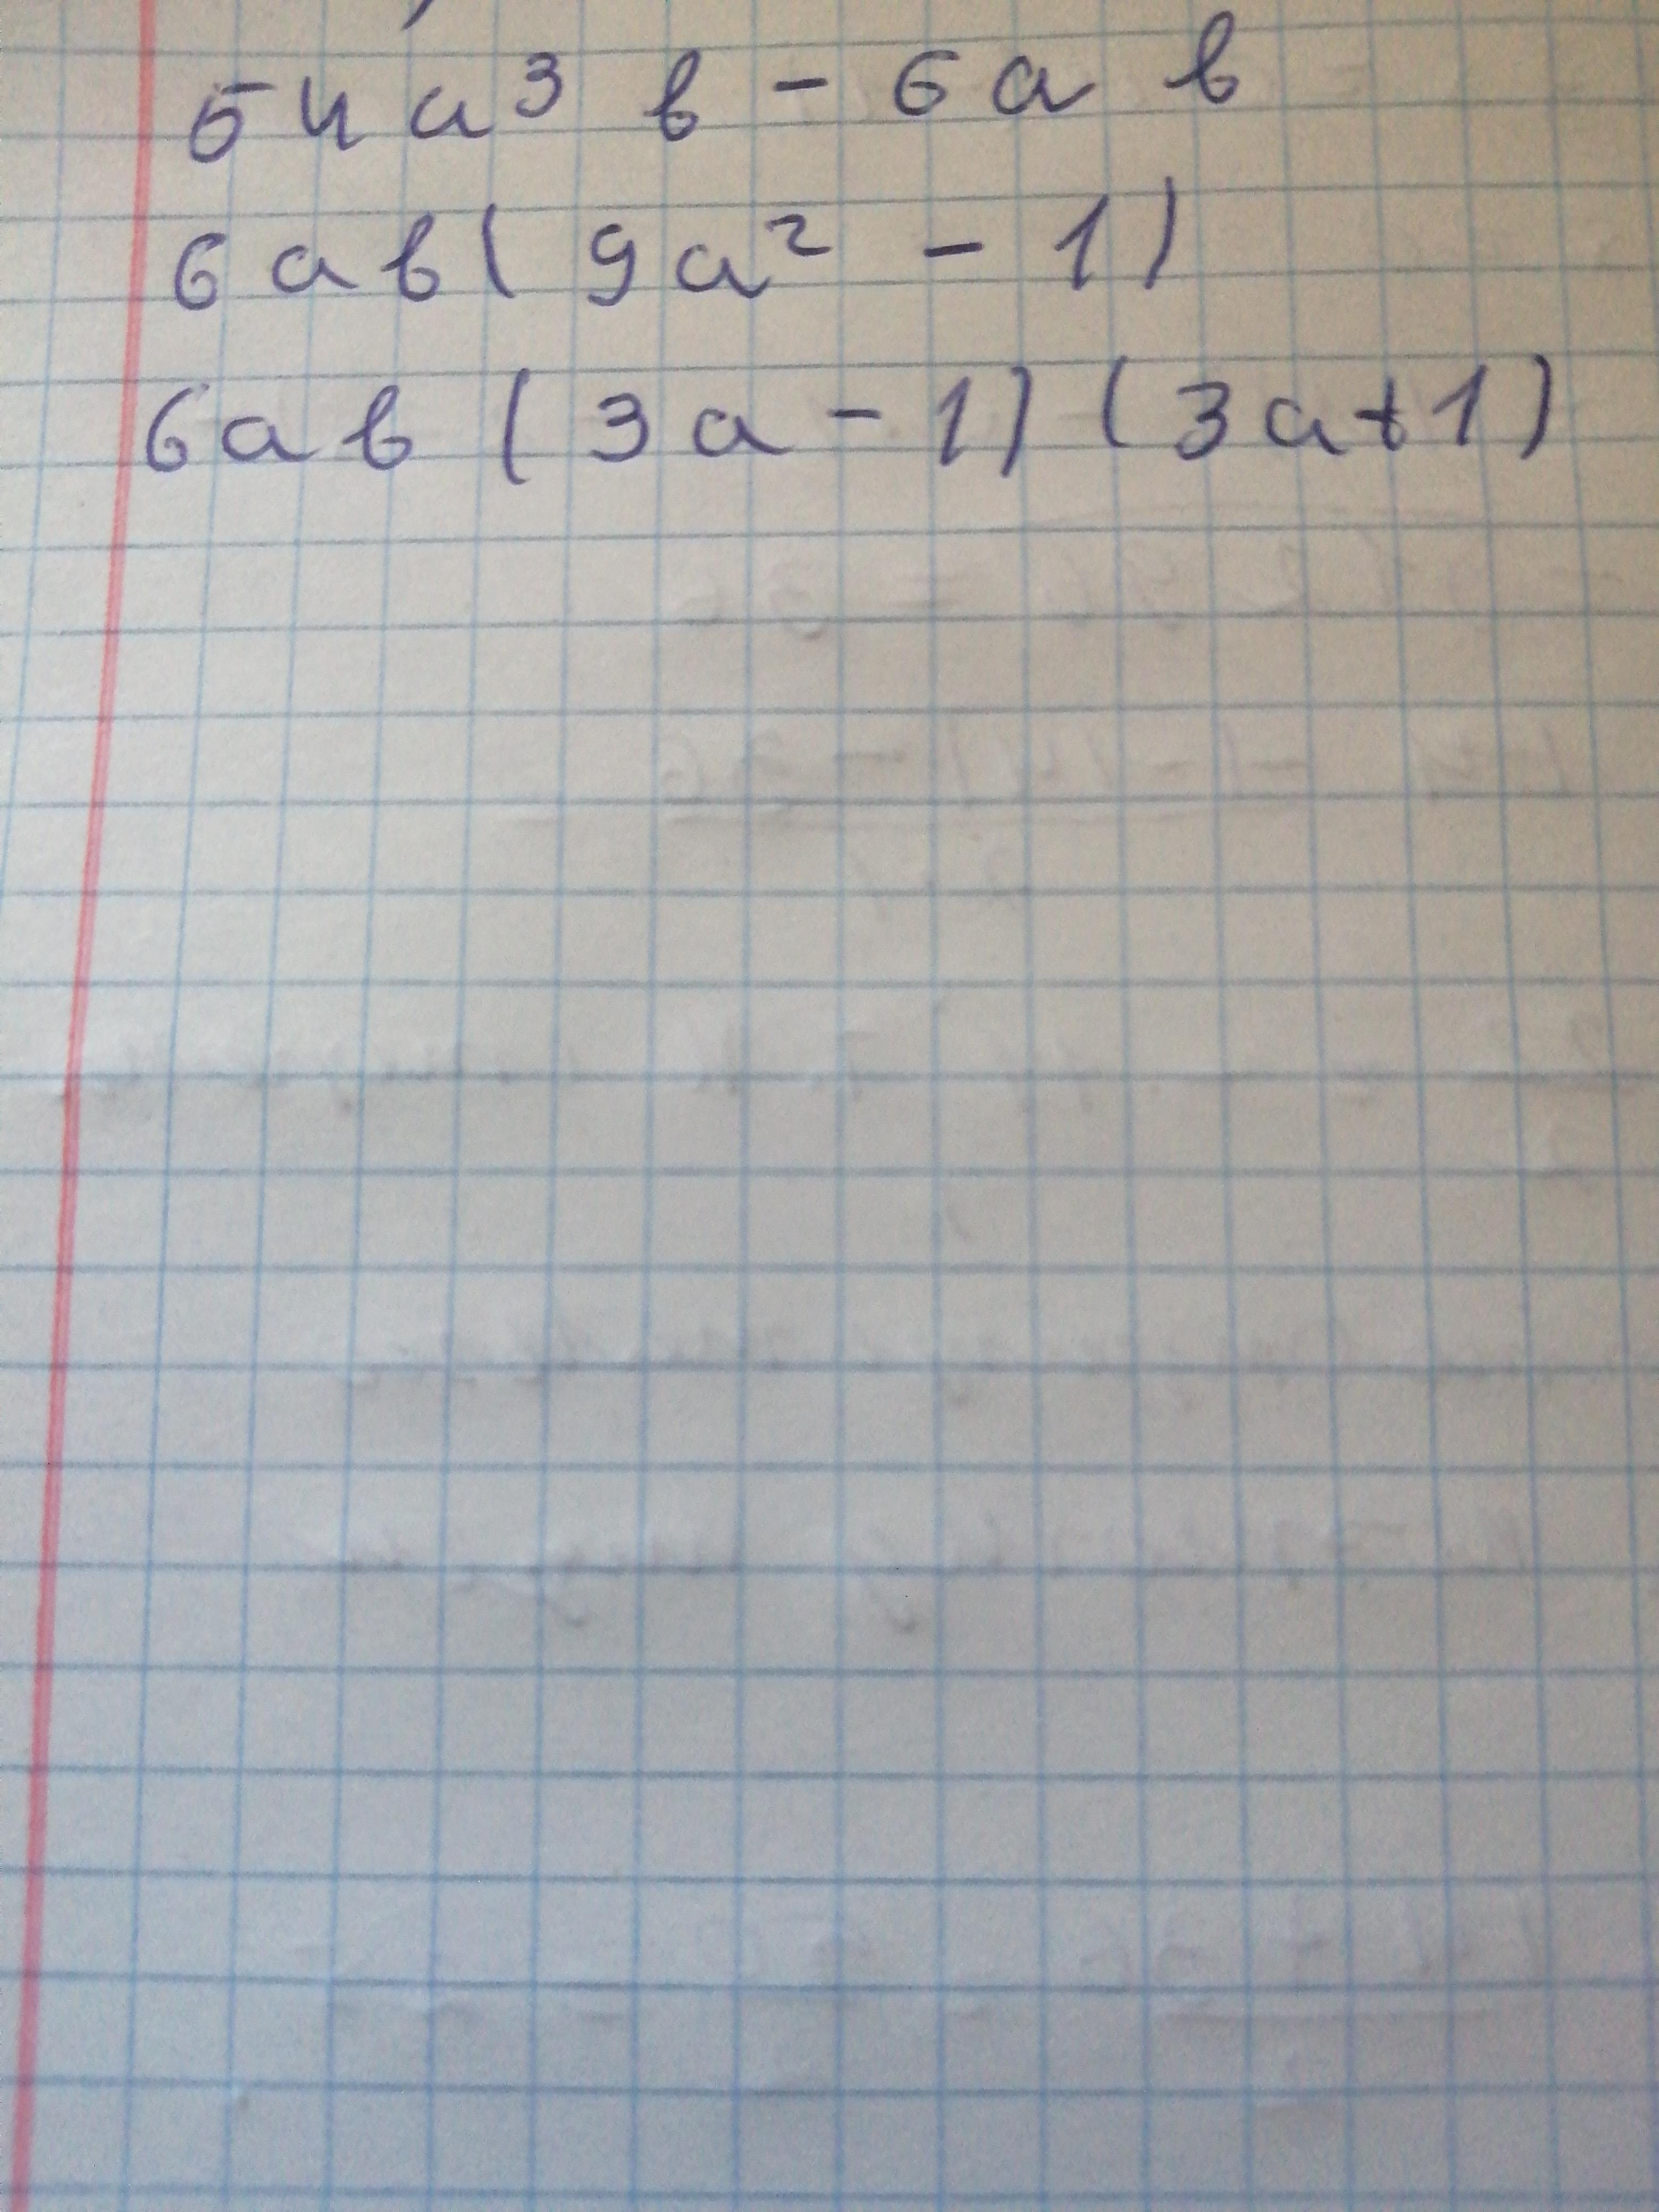 54a³b - 6ab
6ab(9a² - 1)
6ab(3a - 1)(3a+1)